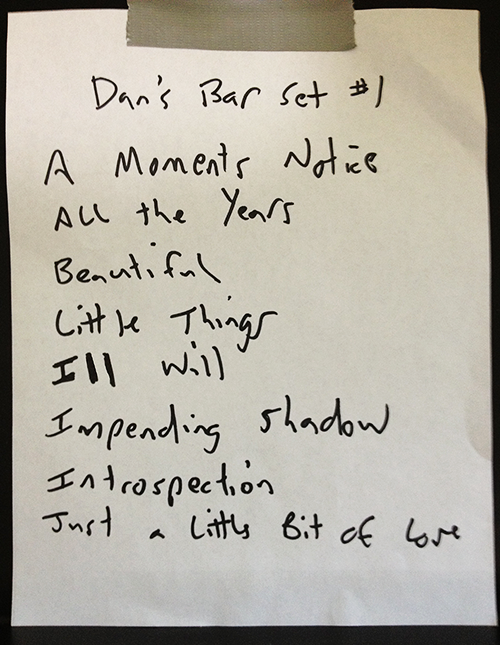 Dan's Bar Set #1
A Moments Notice
All the Years
Beautiful
Little Things
Ill Will
Impending Shadow
Introspection
Just a Little Bit of Love